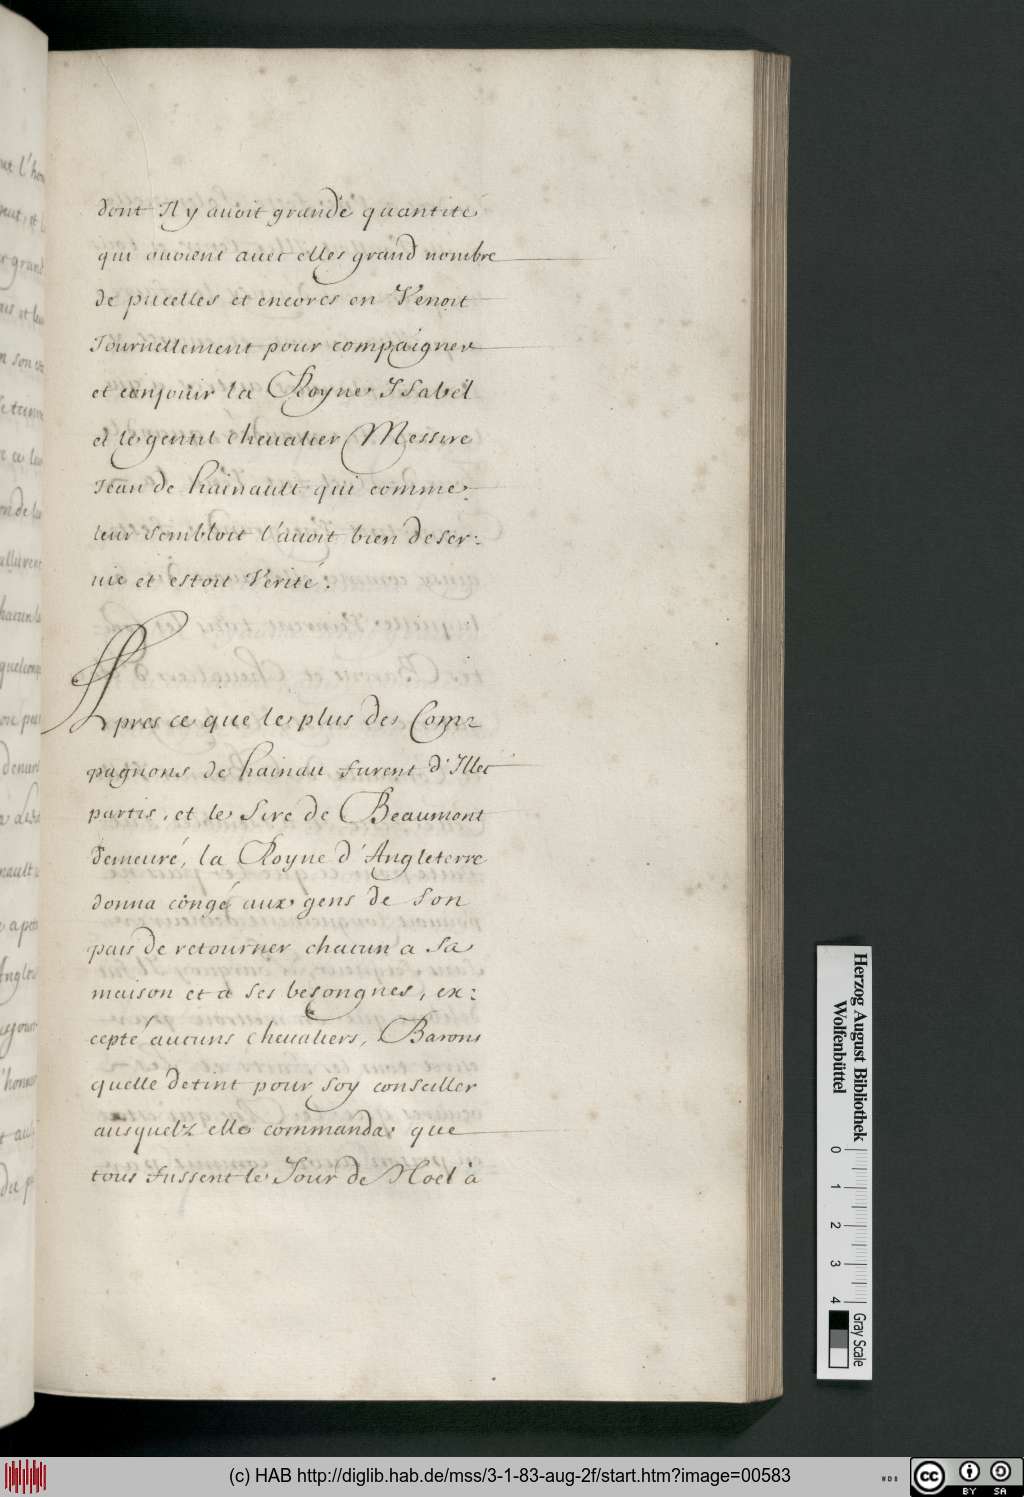 dont Il y auoit grande quantité
qui auoient auec elles grand nombre
de pucelles et encores en Venoit
Journellement pour compaigner
et conjouir la Royne Isabel
et le gentil cheualier Messire
Jean de hainault qui comme
leur sembloit l'auoit bien deser:
uie et estoit Verité.
Apres ce que le plus des Com=
pagnons de hainau furent d'Illec
partis, et le Sire de Beaumont
demeuré, la Royne d'Angleterre
donna congé aux gens de son
pais de retourner chacun a sa
maison et a ses besongnes, ex:
cepté aucuns cheualiers, Barons
quelle detint pour soy conseiller
ausquelz elle commanda que
tous fussent le Jour de Noel à
Herzog August Bibliothek
Wolfenbüttel
0 1 2 3 4
Gray Scale
(c) HAB http://diglib.hab.de/mss/3-1-83-aug-2f/start.htm?image=00583
cc BY SA